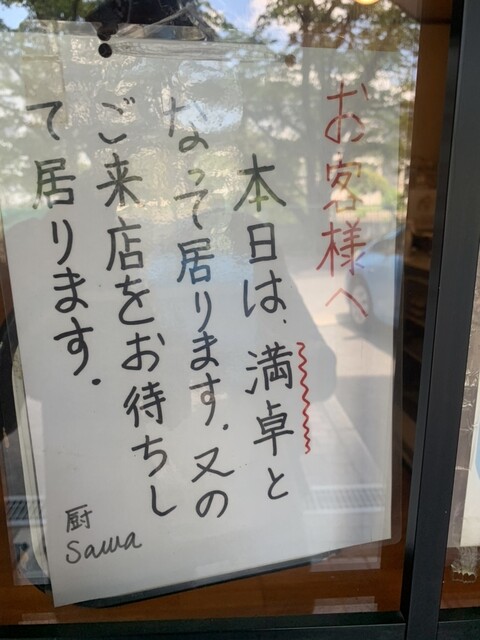 お客様へ
本日は、満卓と
なって居ります。又の
ご来店をお待ちし
て居ります。
厨
Sawa